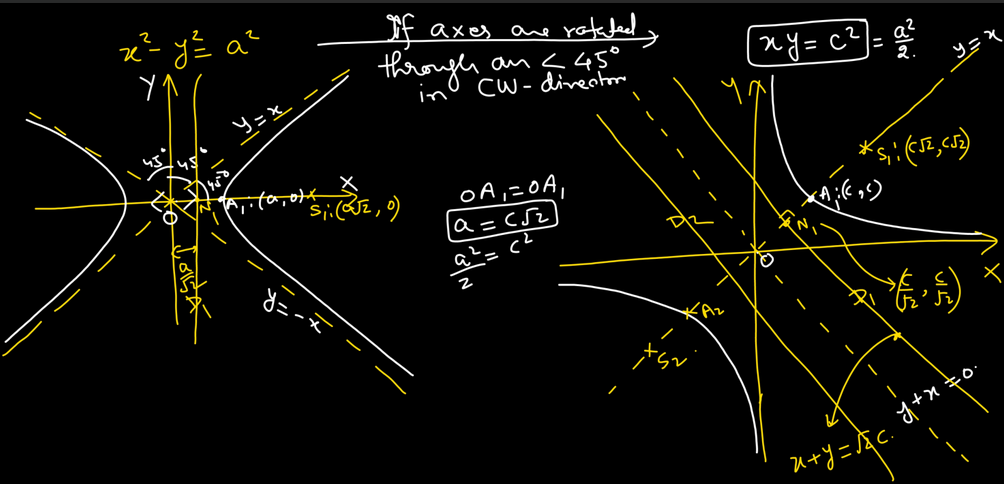 x² - y² = a²
If axes are rotated
through an < 45°
in CW-direction
xy = c² = a²/2.
y = x
Y
y = x
45°
45°
45°
X
O
N₁
A₁:(a,0)
S₁:(a√2, 0)
a/√2
D₁
y = -x
OA₁ = OA₁
a = c√2
a²/2 = c²
Y
S₁:(c√2, c√2)
A₁:(c,c)
D2
N₁
O
X
(c/√2, c/√2)
D₁
A2
S₂
y+x=0
x+y=√2c.